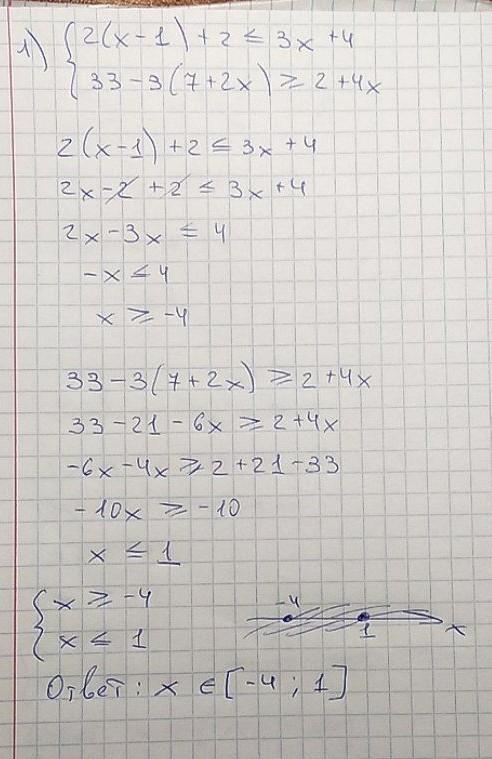 1) { 2(x-1)+2 ≤ 3x+4
33-3(7+2x) ≥ 2+4x
2(x-1)+2 ≤ 3x+4
2x-2+2 ≤ 3x+4
2x-3x ≤ 4
-x ≤ 4
x ≥ -4
33-3(7+2x) ≥ 2+4x
33-21-6x ≥ 2+4x
-6x-4x ≥ 2+21-33
-10x ≥ -10
x ≤ 1
{ x ≥ -4
x ≤ 1
-4 1 x
Ответ: x ∈ [-4; 1]